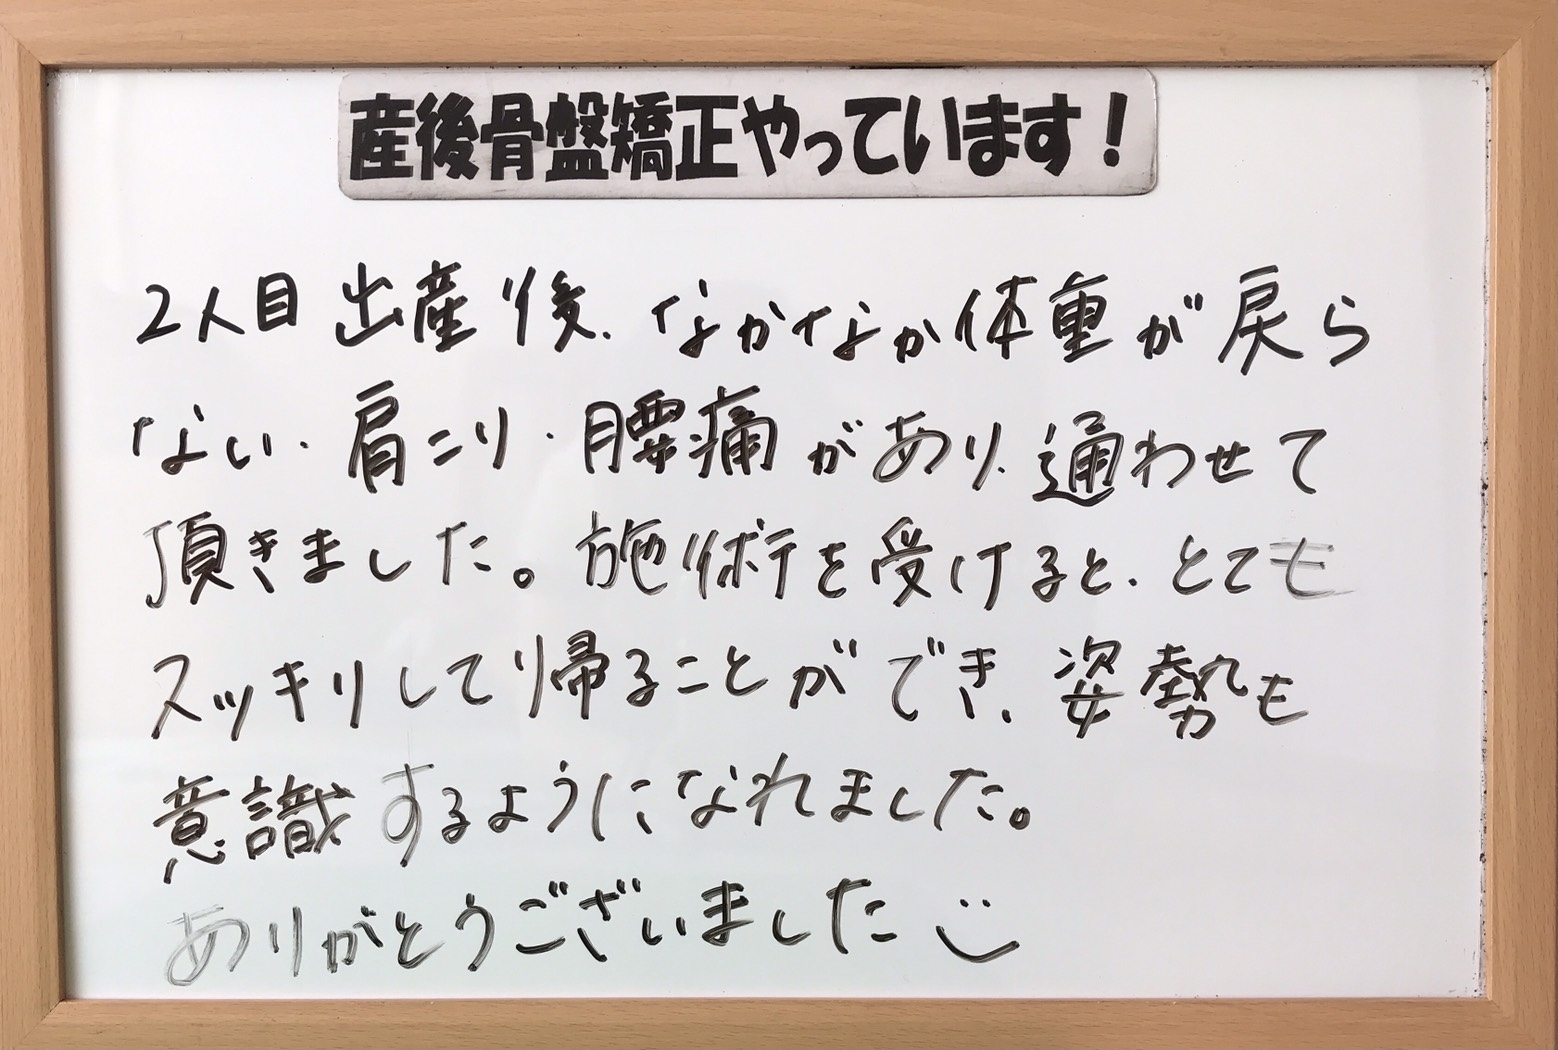 産後骨盤矯正やっています！
2人目出産後、なかなか体重が戻ら
ない、肩こり、腰痛があり、通わせて
頂きました。施術を受けると、とても
スッキリして帰ることができ、姿勢も
意識するようになれました。
ありがとうございました